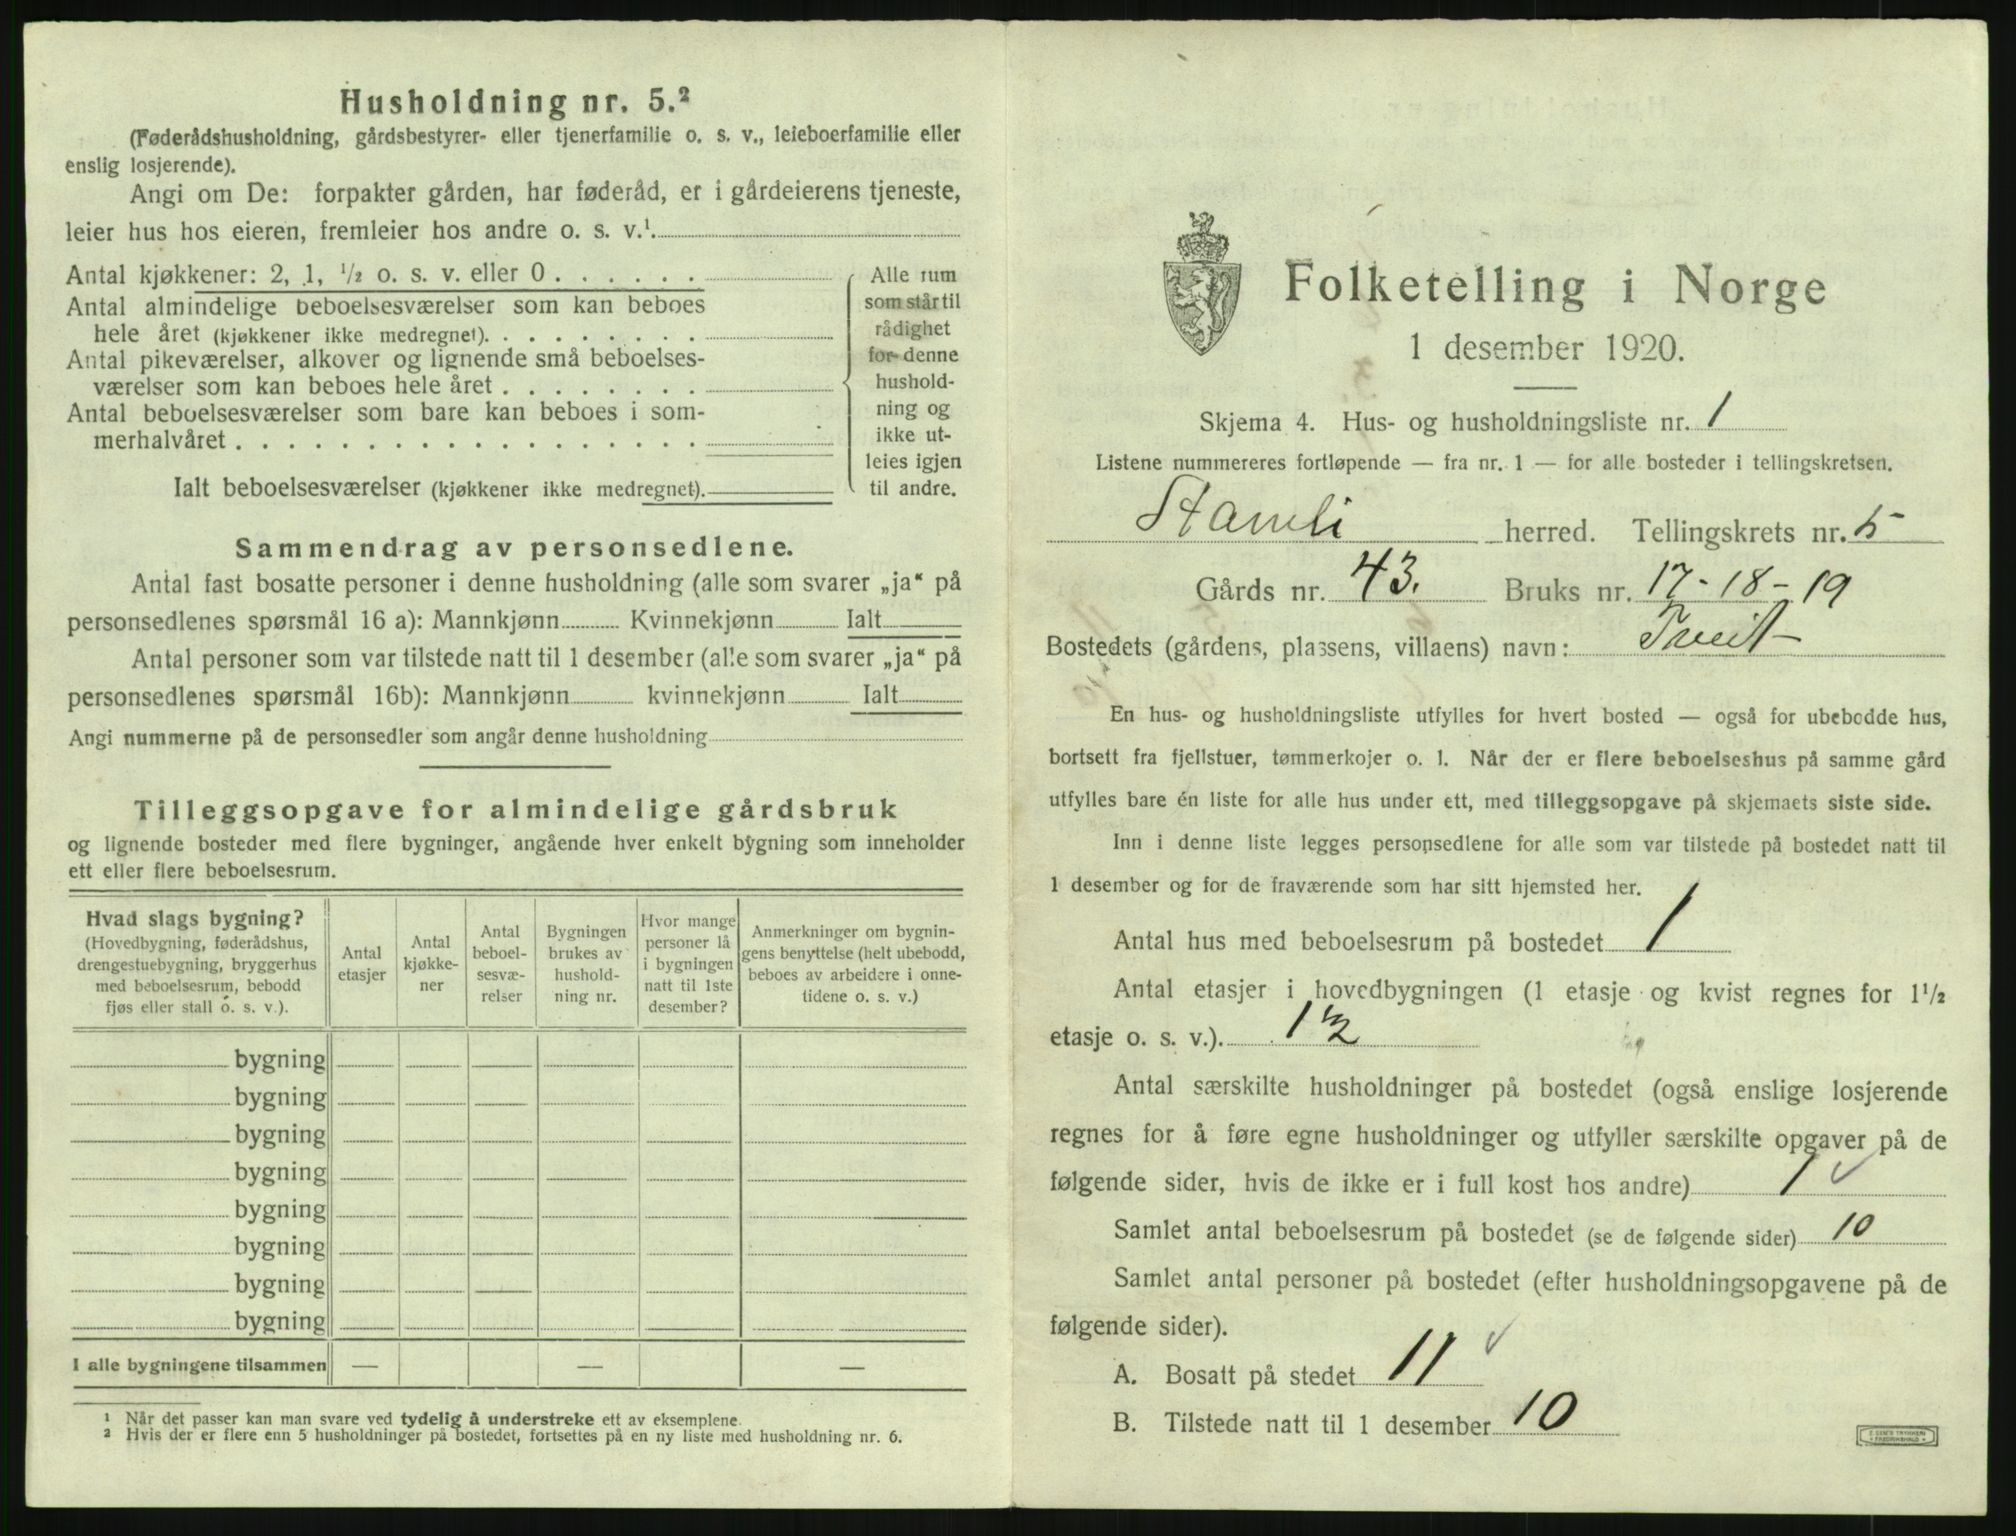 Husholdning nr. 5.²
(Føderådshusholdning, gårdsbestyrer- eller tjenerfamilie o. s. v., leieboerfamilie eller
enslig losjerende).
Angi om De: forpakter gården, har føderåd, er i gårdeierens tjeneste,
leier hus hos eieren, fremleier hos andre o. s. v.¹.
Antal kjøkkener: 2, 1, ½ o. s. v. eller 0 . . . . . .
Antal almindelige beboelsesværelser som kan beboes
hele året (kjøkkener ikke medregnet). . . . . . . . .
Antal pikeværelser, alkover og lignende små beboelses-
værelser som kan beboes hele året . . . . . . . .
Antal beboelsesværelser som bare kan beboes i som-
merhalvåret . . . . . . . . . . . . . . . . . .
Ialt beboelsesværelser (kjøkkener ikke medregnet).
Alle rum
som står til
rådighet
for denne
hushold-
ning og
ikke ut-
leies igjen
til andre.
Sammendrag av personsedlene.
Antal fast bosatte personer i denne husholdning (alle som svarer „ja“ på
personsedlenes spørsmål 16 a): Mannkjønn Kvinnekjønn Ialt
Antal personer som var tilstede natt til 1 desember (alle som svarer „ja“ på
personsedlenes spørsmål 16b): Mannkjønn kvinnekjønn Ialt
Angi nummerne på de personsedler som angår denne husholdning
Tilleggsopgave for almindelige gårdsbruk
og lignende bosteder med flere bygninger, angående hver enkelt bygning som inneholder
ett eller flere beboelsesrum.
Hvad slags bygning?
(Hovedbygning, føderådshus,
drengestuebygning, bryggerhus
med beboelsesrum, bebodd
fjøs eller stall o. s. v.).
Antal
etasjer
Antal
kjøkke-
ner
Antal
beboel-
sesvæ-
relser
Bygningen
brukes av
hushold-
ning nr.
Hvor mange
personer lå
i bygningen
natt til 1ste
desember?
Anmerkninger om bygnin-
gens benyttelse (helt ubebodd,
beboes av arbeidere i onne-
tidene o. s. v.)
bygning
bygning
bygning
bygning
bygning
bygning
bygning
bygning
I alle bygningene tilsammen — — —
¹ Når det passer kan man svare ved tydelig å understreke ett av eksemplene.
² Hvis der er flere enn 5 husholdninger på bostedet, fortsettes på en ny liste med husholdning nr. 6.
Folketelling i Norge
1 desember 1920.
Skjema 4. Hus- og husholdningsliste nr. 1
Listene nummereres fortløpende — fra nr. 1 — for alle bosteder i tellingskretsen.
herred. Tellingskrets nr. 5
Gårds nr. 43. Bruks nr. 17-18-19
Bostedets (gårdens, plassens, villaens) navn: Tveit
En hus- og husholdningsliste utfylles for hvert bosted — også for ubebodde hus,
bortsett fra fjellstuer, tømmerkojer o. l. Når der er flere beboelseshus på samme gård
utfylles bare én liste for alle hus under ett, med tilleggsopgave på skjemaets siste side.
Inn i denne liste legges personsedlene for alle som var tilstede på bostedet natt til
1 desember og for de fraværende som har sitt hjemsted her.
Antal hus med beboelsesrum på bostedet 1
Antal etasjer i hovedbygningen (1 etasje og kvist regnes for 1½
etasje o. s. v.). 1½
Antal særskilte husholdninger på bostedet (også enslige losjerende
regnes for å føre egne husholdninger og utfyller særskilte opgaver på de
følgende sider, hvis de ikke er i full kost hos andre) 1 ✓
Samlet antal beboelsesrum på bostedet (se de følgende sider) 10
Samlet antal personer på bostedet (efter husholdningsopgavene på de
følgende sider).
A. Bosatt på stedet 11 ✓
B. Tilstede natt til 1 desember 10